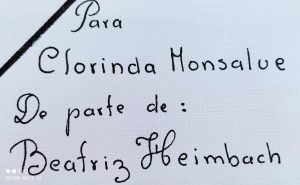 Para
Clorinda Monsalve
De parte de :
Beatriz Heimbach